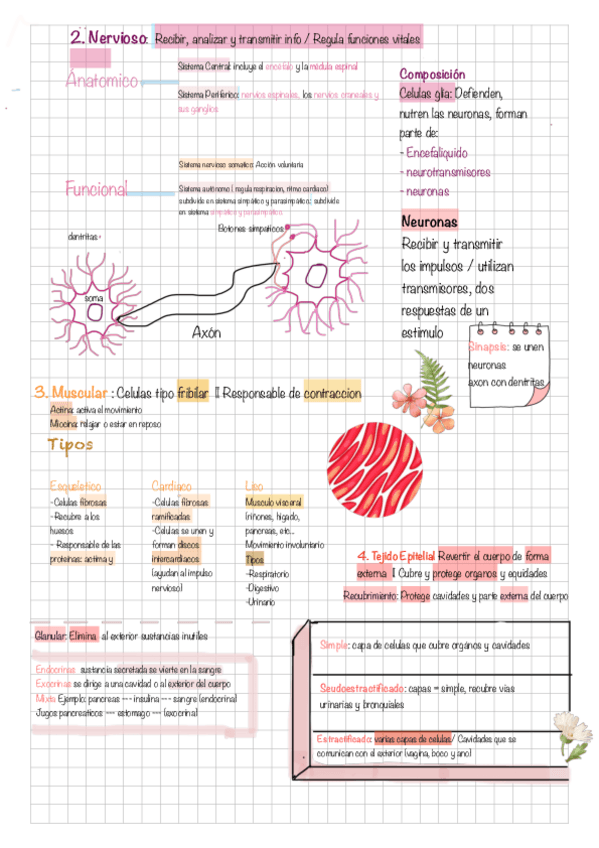 2. Nervioso: Recibir, analizar y transmitir info / Regula funciones vitales
Anatomico
Sistema Central: incluye el encefalo y la médula espinal
Sistema Periférico: nervios espinales, los nervios craneales y
sus ganglios
Composición
Celulas glia: Defienden,
nutren las neuronas, forman
parte de:
- Encefaliquido
- neurotransmisores
- neuronas
Funcional
Sistema nervioso somatico: Acción voluntaria
Sistema autónomo ( regula respiracion, ritmo cardiaco)
subdivide en sistema simpático y parasimpático; subdivide
en sistema simpático y parasimpático.
Neuronas
Recibir y transmitir
los impulsos / utilizan
transmisores, dos
respuestas de un
estimulo
Botones simpaticos
dentritas
soma
Axón
Sinapsis: se unen
neuronas
axon con dentritas
3. Muscular : Celulas tipo fribilar || Responsable de contraccion
Actina: activa el movimiento
Miocina: relajar o estar en reposo
Tipos
Esquelético
-Celulas fibrosas
-Recubre a los
huesos
- Responsable de las
proteinas: actima y
Cardiaco
-Celulas fibrosas
ramificadas
-Celulas se unen y
forman discos
intercardiacos
(ayudan al impulso
nervioso)
Liso
Musculo visceral
(riñones, higado,
pancreas, etc...
Movimiento involuntario
Tipos
-Respiratorio
-Digestivo
-Urinario
4. Tejido Epitelial Revertir el cuerpo de forma
externa || Cubre y protege organos y equidades
Recubrimiento: Protege cavidades y parte externa del cuerpo
Glanular: Elimina al exterior sustancias inutiles
Endocrinas sustancia secretada se vierte en la sangre
Exocrinas se dirige a una cavidad o al exterior del cuerpo
Mixta Ejemplo: pancreas --- insulina -- sangre (endocrina)
Jugos pancreaticos --- estomago --- (exocrina)
Simple: capa de celulas que cubre organos y cavidades
Seudoestractificado: capas = simple, recubre vias
urinarias y bronquiales
Estractificado: varias capas de celulas/ Cavidades que se
comunican con el exterior (vagina, boca y ano)